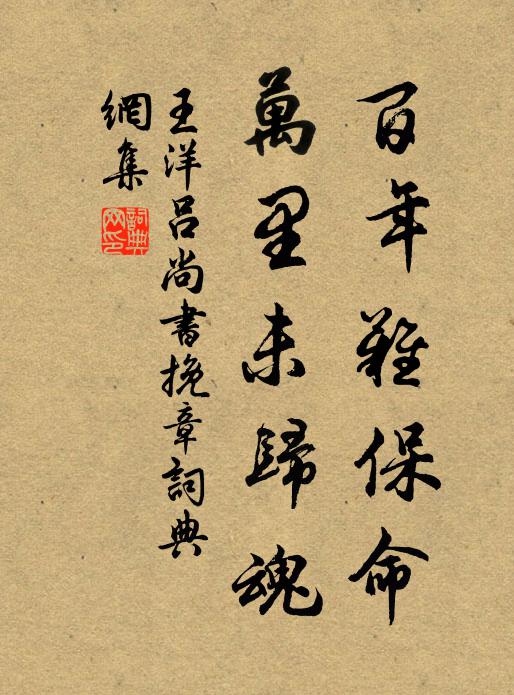 百年難保命
萬里未歸魂
王洋呂尚書挽章詞典
網集
詞典网印